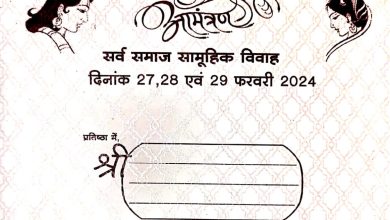 आमंत्रण
सर्व समाज सामूहिक विवाह
दिनांक 27,28 एवं 29 फरवरी 2024
प्रतिष्ठा में,
श्री